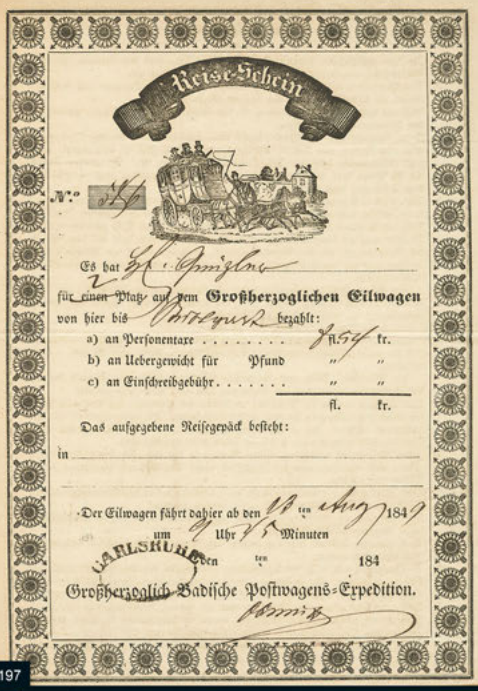 Reise-Schein
N.º
Es hat H.
für einen Platz auf dem Großherzoglichen Eilwagen
von hier bis bezahlt:
a) an Personentaxe . . . . . . . . 8 fl. 54 kr.
b) an Uebergewicht für Pfund " "
c) an Einschreibgebühr . . . . . . . " "
fl. kr.
Das aufgegebene Reisegepäck besteht:
in
Der Eilwagen fährt dahier ab den 13 ten Aug 1849
um 9 Uhr 15 Minuten
CARLSRUHE den ten 184
Großherzoglich Badische Postwagens-Expedition.
197